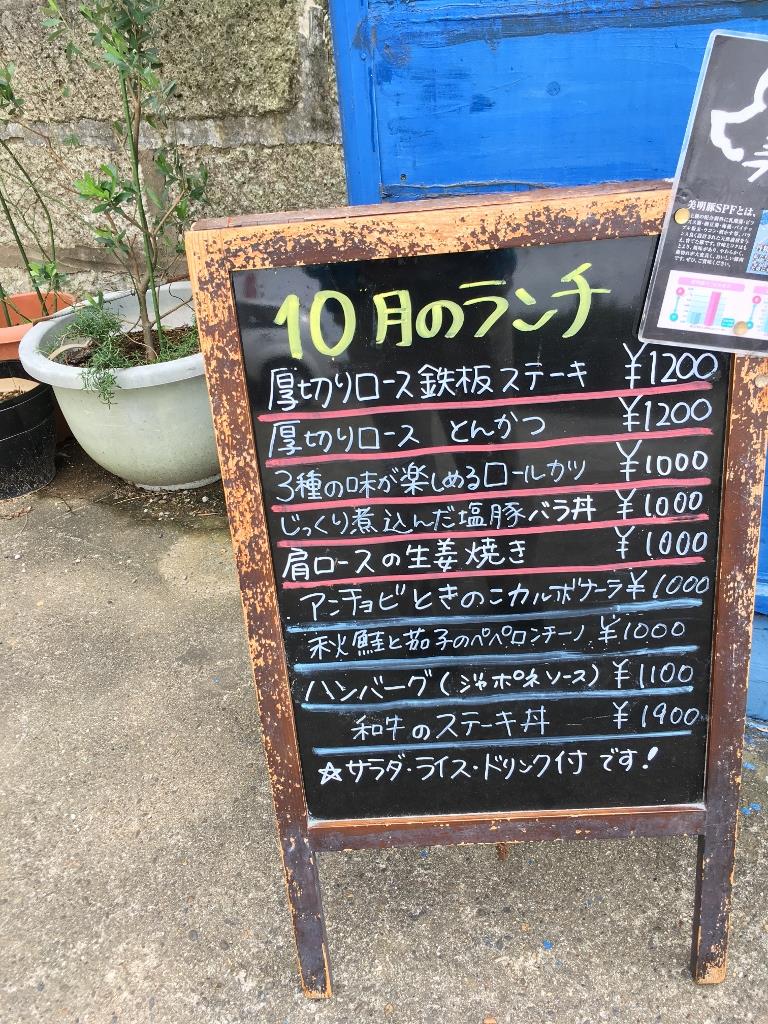 10月のランチ
厚切りロース鉄板ステーキ ¥1200
厚切りロース とんかつ ¥1200
3種の味が楽しめるロールカツ ¥1000
じっくり煮込んだ塩豚バラ丼 ¥1000
肩ロースの生姜焼き ¥1000
アンチョビときのこカルボナーラ ¥1000
秋鮭と茄子のペペロンチーノ ¥1000
ハンバーグ(ジャポネソース) ¥1100
和牛のステーキ丼 ¥1900
☆サラダ・ライス・ドリンク付です!
美明豚SPFとは、